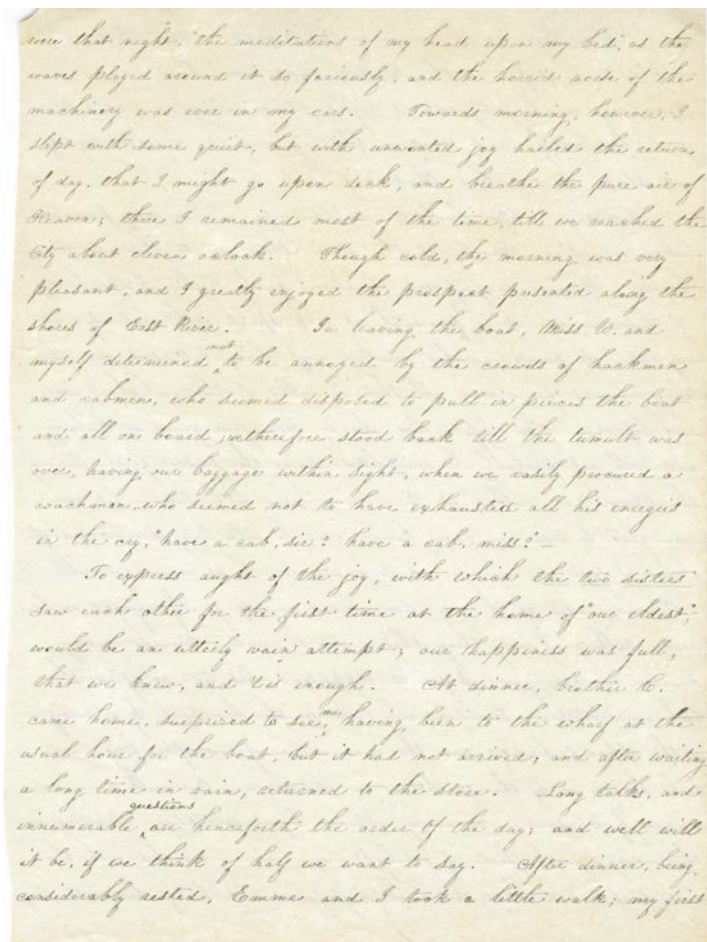 were that night, "the meditations of my head upon my bed", as the
waves played around it so furiously, and the horrid noise of the
machinery was ever in my ears. Towards morning, however, I
slept with some quiet, but with unwonted joy hailed the return
of day, that I might go upon deck, and breathe the pure air of
Heaven; there I remained most of the time, till we reached the
City about eleven oclock. Though cold, the morning was very
pleasant, and I greatly enjoyed the prospect presented along the
shores of East River. In leaving the boat, Miss W. and
myself determined not to be annoyed by the crowds of hackmen
and cabmen, who seemed disposed to pull in pieces the boat
and all on board, we therefore stood back till the tumult was
over, having our baggage within sight, when we easily procured a
coachman, who seemed not to have exhausted all his energies
in the cry, "have a cab, sir? have a cab, miss?" —
To express aught of the joy, with which the two sisters
saw each other for the first time at the home of "our eldest",
would be an utterly vain attempt; our happiness was full,
that we knew, and 'tis enough. At dinner, brother C.
came home, surprized to see me, having been to the wharf at the
usual hour for the boat, but it had not arrived; and after waiting
a long time in vain, returned to the store. Long talks, and
innumerable questions are henceforth the order of the day; and well will
it be, if we think of half we want to say. After dinner, being
considerably rested, Emme and I took a little walk; my first